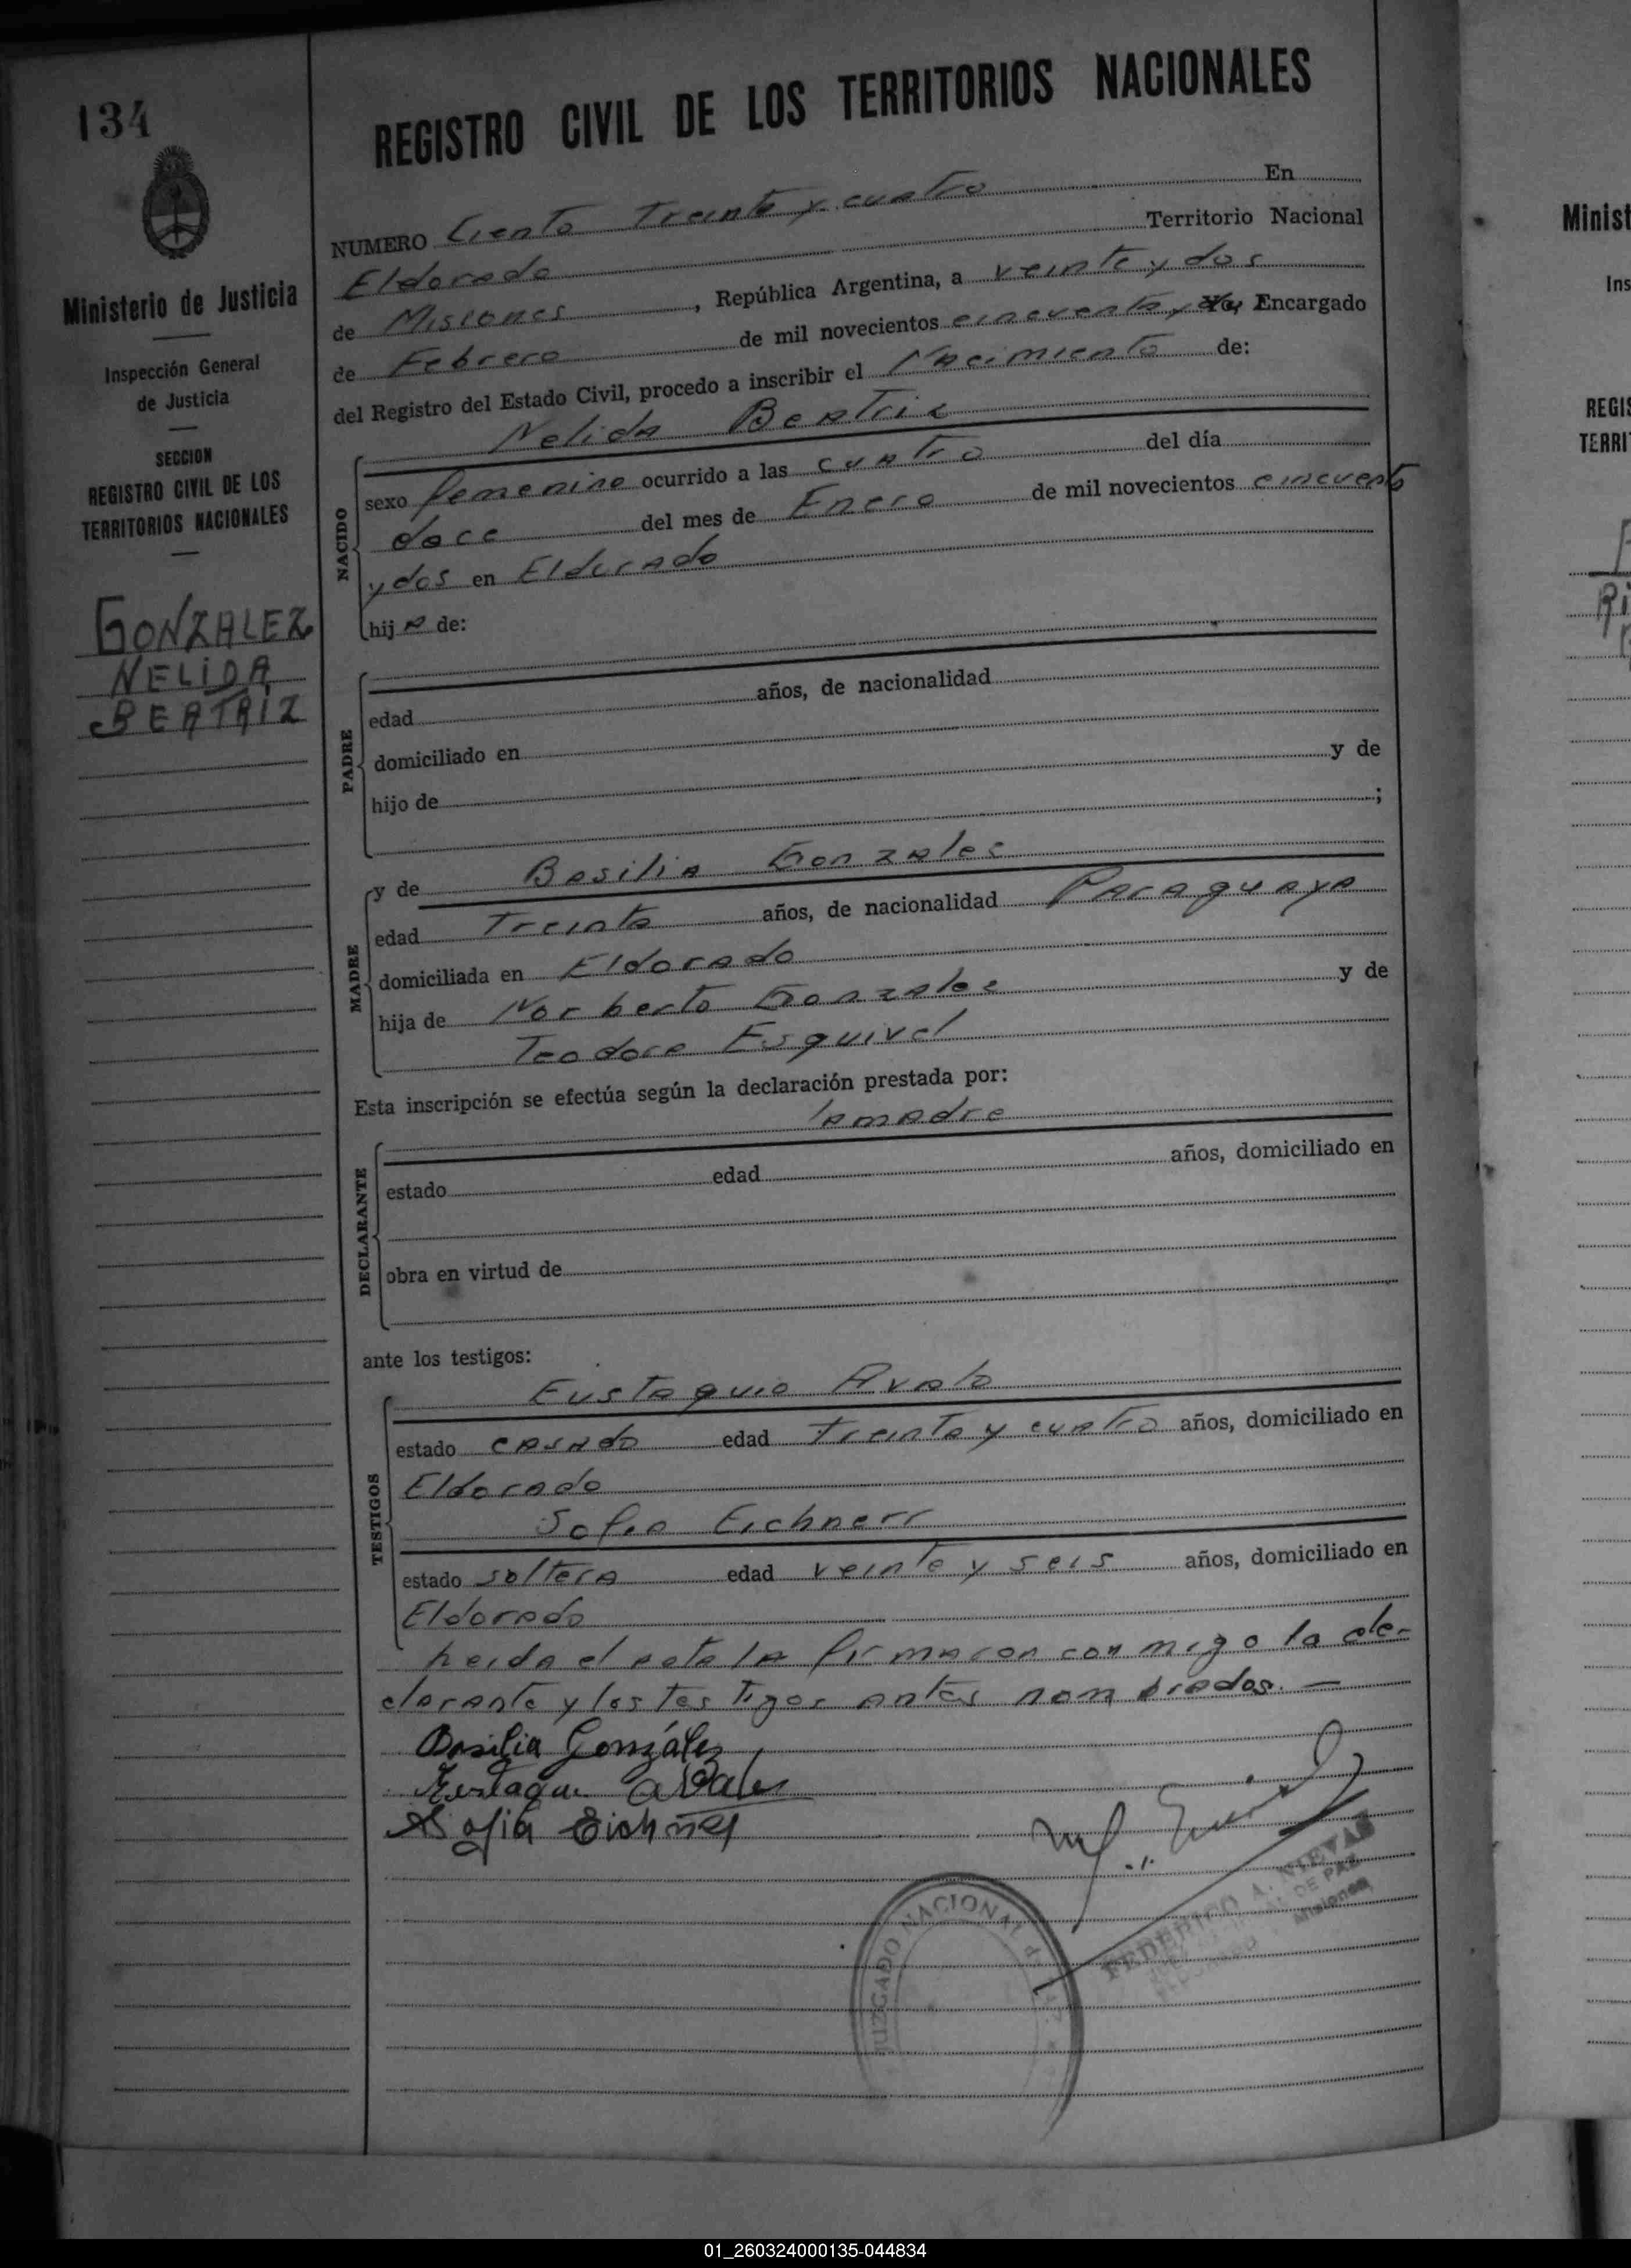 134
Ministerio de Justicia
Inspección General
de Justicia
SECCION
REGISTRO CIVIL DE LOS
TERRITORIOS NACIONALES
GONZALEZ
NELIDA
BEATRIZ
REGISTRO CIVIL DE LOS TERRITORIOS NACIONALES
NUMERO Ciento Treinta y cuatro En
Eldorado Territorio Nacional
de Misiones, República Argentina, a veinte y dos
de Febrero de mil novecientos cincuenta y dos, Encargado
del Registro del Estado Civil, procedo a inscribir el Nacimiento de:
Nelida Beatriz
NACIDO
sexo femenino ocurrido a las cuatro del día
doce del mes de Enero de mil novecientos cincuenta
y dos en Eldorado
hija de:
PADRE
edad años, de nacionalidad
domiciliado en
hijo de y de
;
MADRE
y de Basilia Gonzales
edad Treinta años, de nacionalidad Paraguaya
domiciliada en Eldorado
hija de Norberto Gonzales y de
Teodora Esquivel
Esta inscripción se efectúa según la declaración prestada por:
la madre
DECLARANTE
estado edad años, domiciliado en
obra en virtud de
ante los testigos:
TESTIGOS
Eustaquio Avalo
estado casado edad treinta y cuatro años, domiciliado en
Eldorado
Sofia Eichnerr
estado soltera edad veinte y seis años, domiciliado en
Eldorado
heida el acta la firmaron con migo la de-
clarante y los testigos antes nombrados. —
Basilia González
Sofía Eichner
FEDERICO A. NIEVAS
DE PAZ
Misiones
JUZGADO NACIONAL
Minist
Ins
REGIS
TERRI
01_260324000135-044834